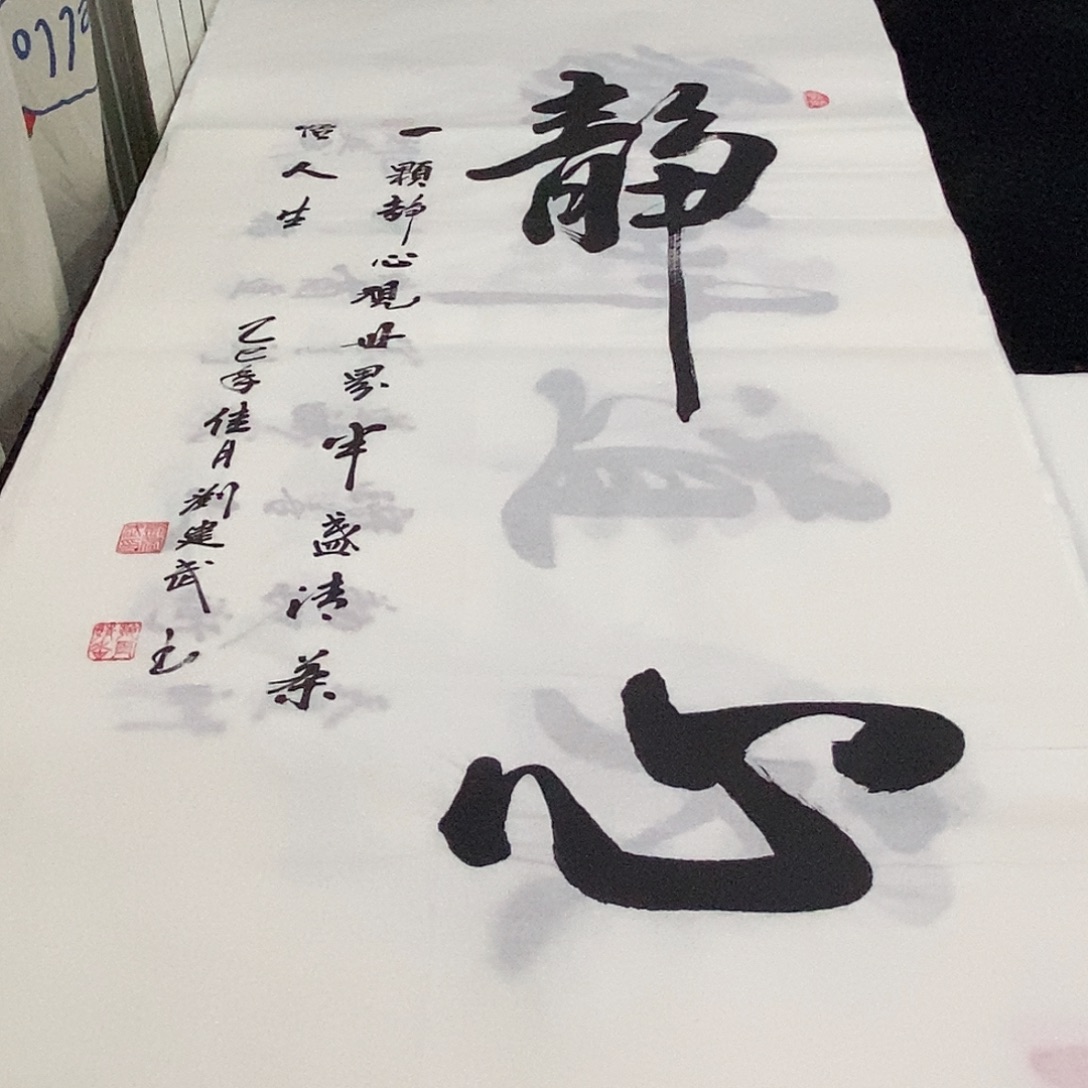 静心
一颗静心观世界半盏清茶
悟人生
乙巳年佳月刘建武书